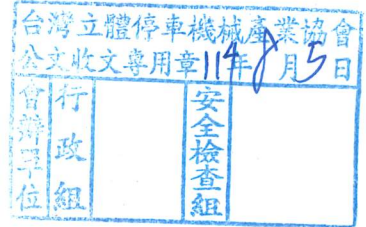 台灣立體停車機械產業協會
公文收文專用章114年8月5日
會辦單位
行政組
安全檢查組